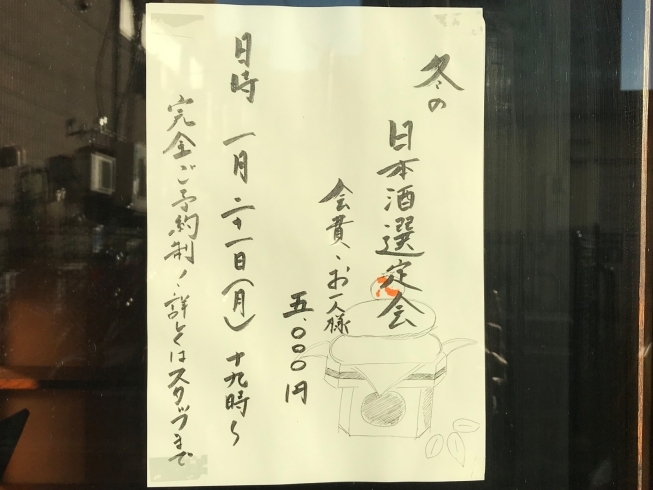 冬の
日本酒選定会
会費、お一人様
五.〇〇〇円
日時 一月二十一日(月)十九時〜
完全ご予約制!詳しくはスタッフまで